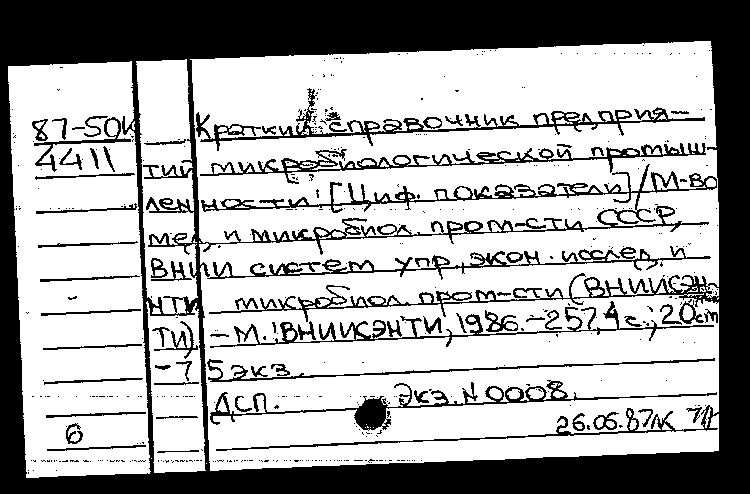 87-50К Краткий справочник предприя-
4411 тий микробиологической промыш-
ленности: [Циф. показатели] / М-во
мед. и микробиол. пром-сти СССР,
ВНИИ систем упр., экон. исслед. и
НТИ микробиол. пром-сти (ВНИИСЭН-
ТИ). – М.: ВНИИСЭНТИ, 1986. – 257, 4 с.; 20 cm
– 75 экз.
ДСП. Экз. N 0008.
6 26.06.87